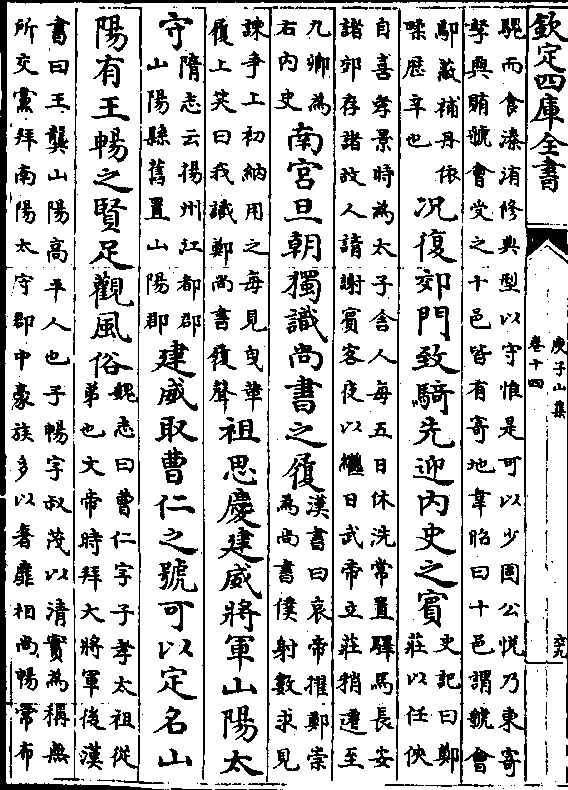 欽定四庫全書
庾子山集
卷十四
騩而食溱洧修典型以守惟是可以少固公悦乃東寄
孥與賄虢會受之十邑皆有寄地韋昭曰十邑謂虢會
鄢蔽補丹依
歴莘也
況復郊門致騎先迎内史之賓
史記曰鄭
莊以任俠
自喜孝景時為太子舍人每五日休洗常置驛馬長安
諸郊存諸故人請謝賓客夜以繼日武帝立莊稍遷至
九卿為
右内史
南宫旦朝獨識尚書之履
漢書曰哀帝擢鄭崇
為尚書僕射數求見
諌爭上初納用之每見曳革
履上笑曰我識鄭尚書履聲
祖思慶建威將軍山陽太
守
隋志云揚州江都郡
山陽縣舊置山陽郡
建威取曹仁之號可以定名山
陽有王暢之賢足觀風俗
魏志曰曹仁字子孝太祖從
弟也文帝時拜大將軍後漢
書曰王龔山陽高平人也子暢字叔茂以清實為稱無
所交黨拜南陽太守郡中豪族多以奢靡相尚暢常布